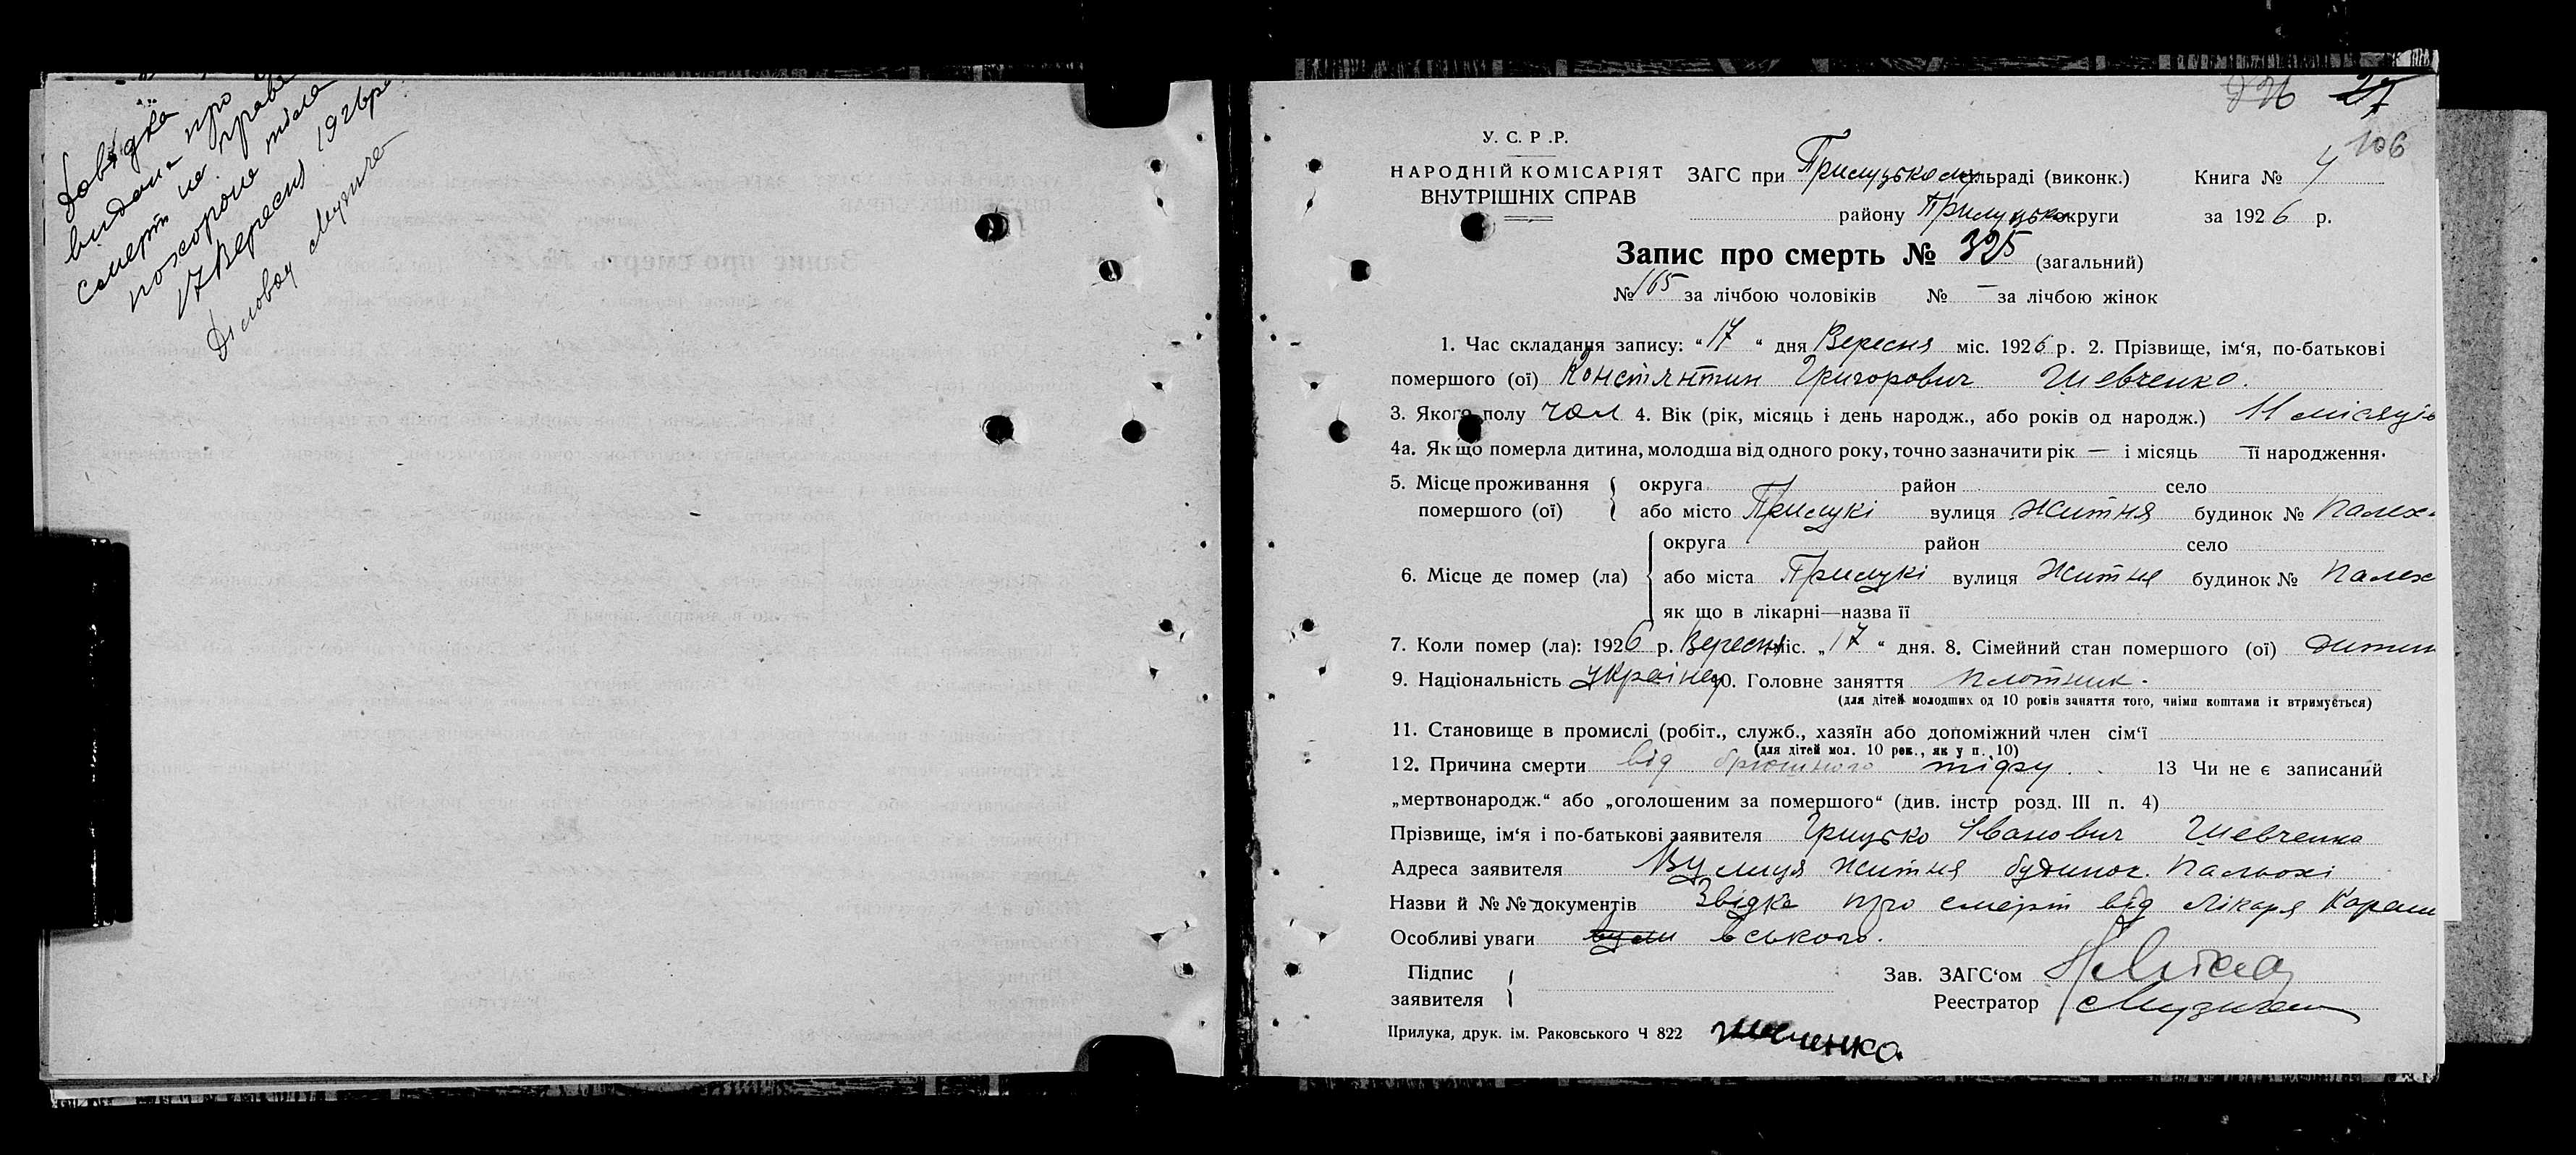 Довідка
видана про
смерт на право
похорона тіла
17 Вересня 1926 р.
Діловод Музиче
27
106
У. С. Р. Р.
НАРОДНІЙ КОМІСАРІЯТ
ВНУТРІШНІХ СПРАВ
ЗАГС при Прилуцькому сільраді (виконк.) Книга № 4
району Прилуцько округи за 1926 р.
Запис про смерть № 325 (загальний)
№ 165 за лічбою чоловіків № — за лічбою жінок
1. Час складання запису: “17“ дня Вересня міс. 1926 р. 2. Прізвище, ім‘я, по-батькові
помершого (ої) Констянтин Григорович Шевченко.
3. Якого полу чол 4. Вік (рік, місяць і день народж., або років од народж.) 11 місяців
4а. Як що померла дитина, молодша від одного року, точно зазначити рік — і місяць — її народження.
5. Місце проживання помершого (ої) { округа район село
або місто Прилукі вулиця Житня будинок № Палех.
6. Місце де помер (ла) { округа район село
або міста Прилукі вулиця Житня будинок № Палех
як що в лікарні—назва її
7. Коли помер (ла): 1926 р. Вересня міс. „17“ дня. 8. Сімейний стан помершого (ої) дитин
9. Національність Українец 10. Головне заняття плотник.
(для дітей молодших од 10 років заняття того, чиїми коштами їх втримується)
11. Становище в промислі (робіт., служб., хазяїн або допоміжний член сім‘ї
(для дітей мол. 10 рок., як у п. 10)
12. Причина смерти від брюшного тіфу. 13 Чи не є записаний
„мертвонародж.“ або „оголошеним за помершого“ (див. інстр розд. III п. 4)
Прізвище, ім‘я і по-батькові заявителя Грицько Іванович Шевченко
Адреса заявителя Вулиця Житня будинок. Пальохі
Назви й № № документів Звідка про смерт від лікаря Караш
Особливі уваги вського.
Підпис заявителя { Зав. ЗАГС‘ом
Реєстратор Музиче
Прилука, друк. ім. Раковського Ч 822 Шевченко.